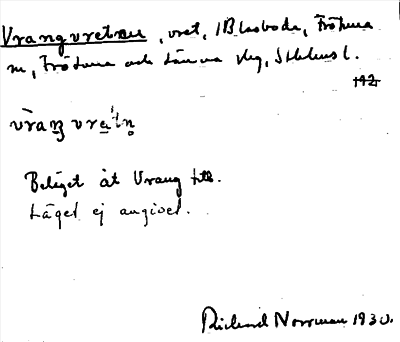 Vrangvretau, vret, /Blasboda, Frötuna
sn, Frötuna och Länna skg, Sthlms l.
192
vràng vreᵗn̥
Beläget åt Vrang till.
Läget ej angivet.
Rickard Norrman 1930.